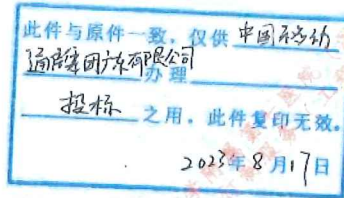 此件与原件一致，仅供 中国移动
通信集团广东有限公司 办理
投标 之用，此件复印无效。
2023年8月17日